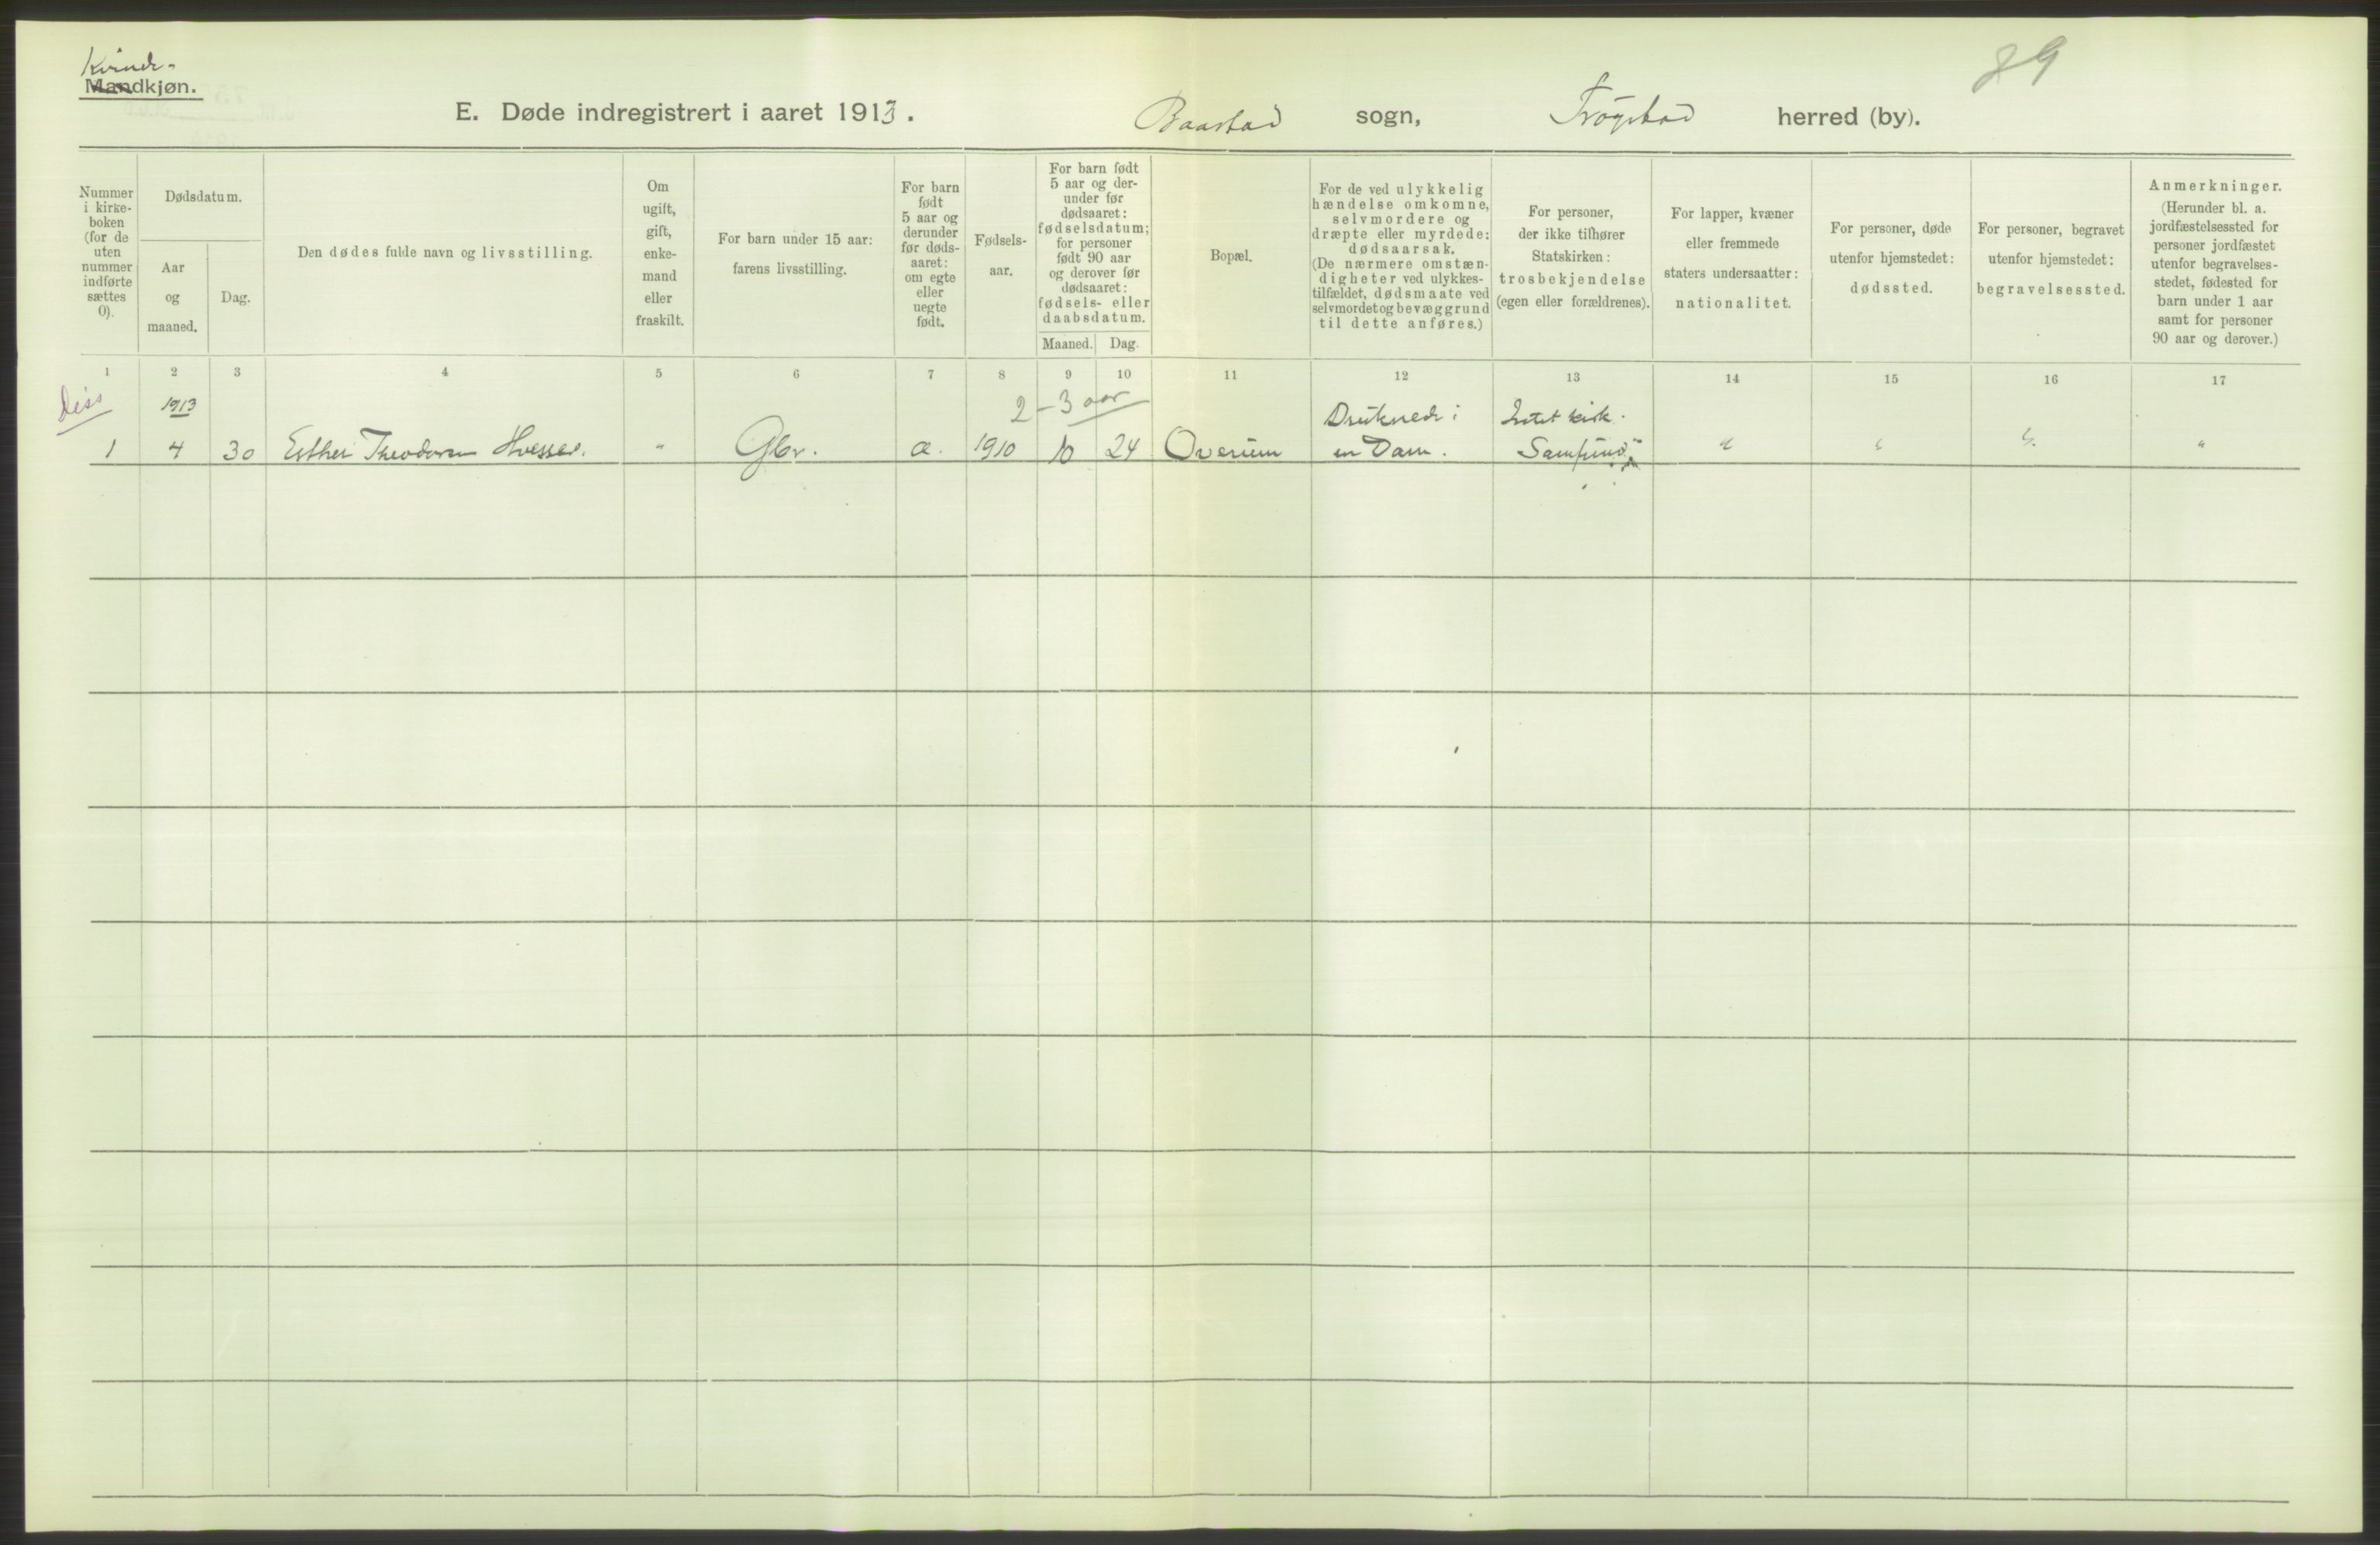 Kvinde-
Mandkjøn.
89
E. Døde indregistrert i aaret 1913. Baastad sogn, Trøgstad herred (by).
Nummer
i kirke-
boken
(for de
uten
nummer
indførte
sættes
0).
Dødsdatum.
Aar
og
maaned.
Dag.
Den dødes fulde navn og livsstilling.
Om
ugift,
gift,
enke-
mand
eller
fraskilt.
For barn under 15 aar:
farens livsstilling.
For barn
født
5 aar og
derunder
før døds-
aaret:
om egte
eller
uegte
født.
Fødsels-
aar.
For barn født
5 aar og der-
under før
dødsaaret:
fødselsdatum;
for personer
født 90 aar
og derover før
dødsaaret:
fødsels- eller
daabsdatum.
Maaned. Dag.
Bopæl.
For de ved ulykkelig
hændelse omkomne,
selvmordere og
dræpte eller myrdede:
dødsaarsak.
(De nærmere omstæn-
digheter ved ulykkes-
tilfældet, dødsmaate ved
selvmordet og bevæggrund
til dette anføres.)
For personer,
der ikke tilhører
Statskirken:
trosbekjendelse
(egen eller forældrenes).
For lapper, kvæner
eller fremmede
staters undersaatter:
nationalitet.
For personer, døde
utenfor hjemstedet:
dødssted.
For personer, begravet
utenfor hjemstedet:
begravelsessted.
Anmerkninger.
(Herunder bl. a.
jordfæstelsessted for
personer jordfæstet
utenfor begravelses-
stedet, fødested for
barn under 1 aar
samt for personer
90 aar og derover.)
1 2 3 4 5 6 7 8 9 10 11 12 13 14 15 16 17
Diss 1913 2-3 aar Druknede i Intet kirk.
1 4 30 Esther Theodora " Gbr. æ. 1910 10 24 en Dam. Samfund " " " "